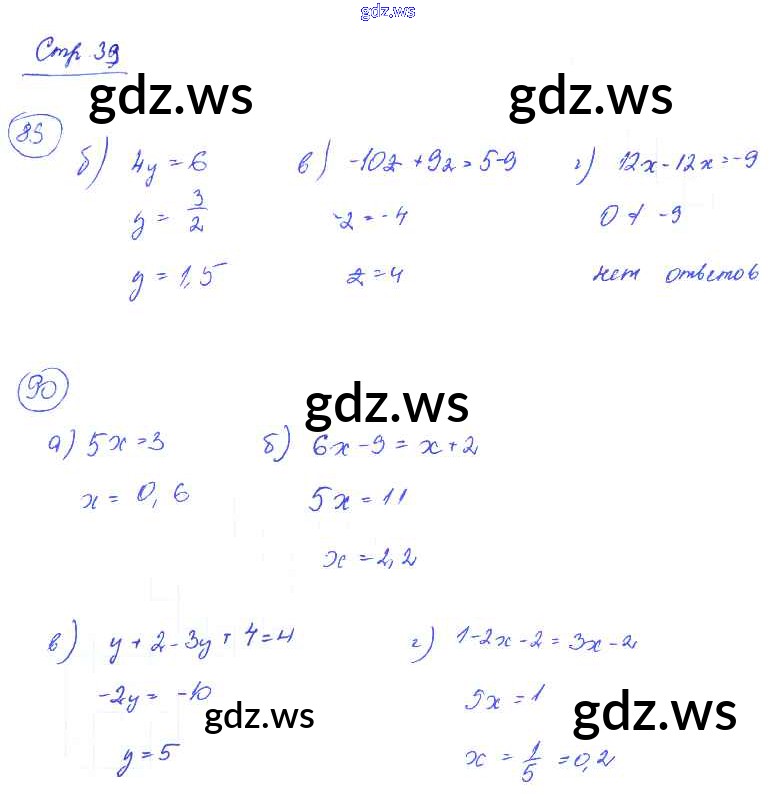 gdz.ws
Стр 39
gdz.ws gdz.ws
85
б) 4y = 6
y = 3/2
y = 1,5
в) -10z + 9z = 5-9
-z = -4
z = 4
г) 12x - 12x = -9
0 ≠ -9
нет ответов
90
gdz.ws
а) 5x = 3
x = 0,6
б) 6x - 9 = x + 2
5x = 11
x = 2,2
в) y + 2 - 3y + 4 = 4
-2y = -10
gdz.ws
y = 5
г) 1 - 2x - 2 = 3x - 2
5x = 1
gdz.ws
x = 1/5 = 0,2